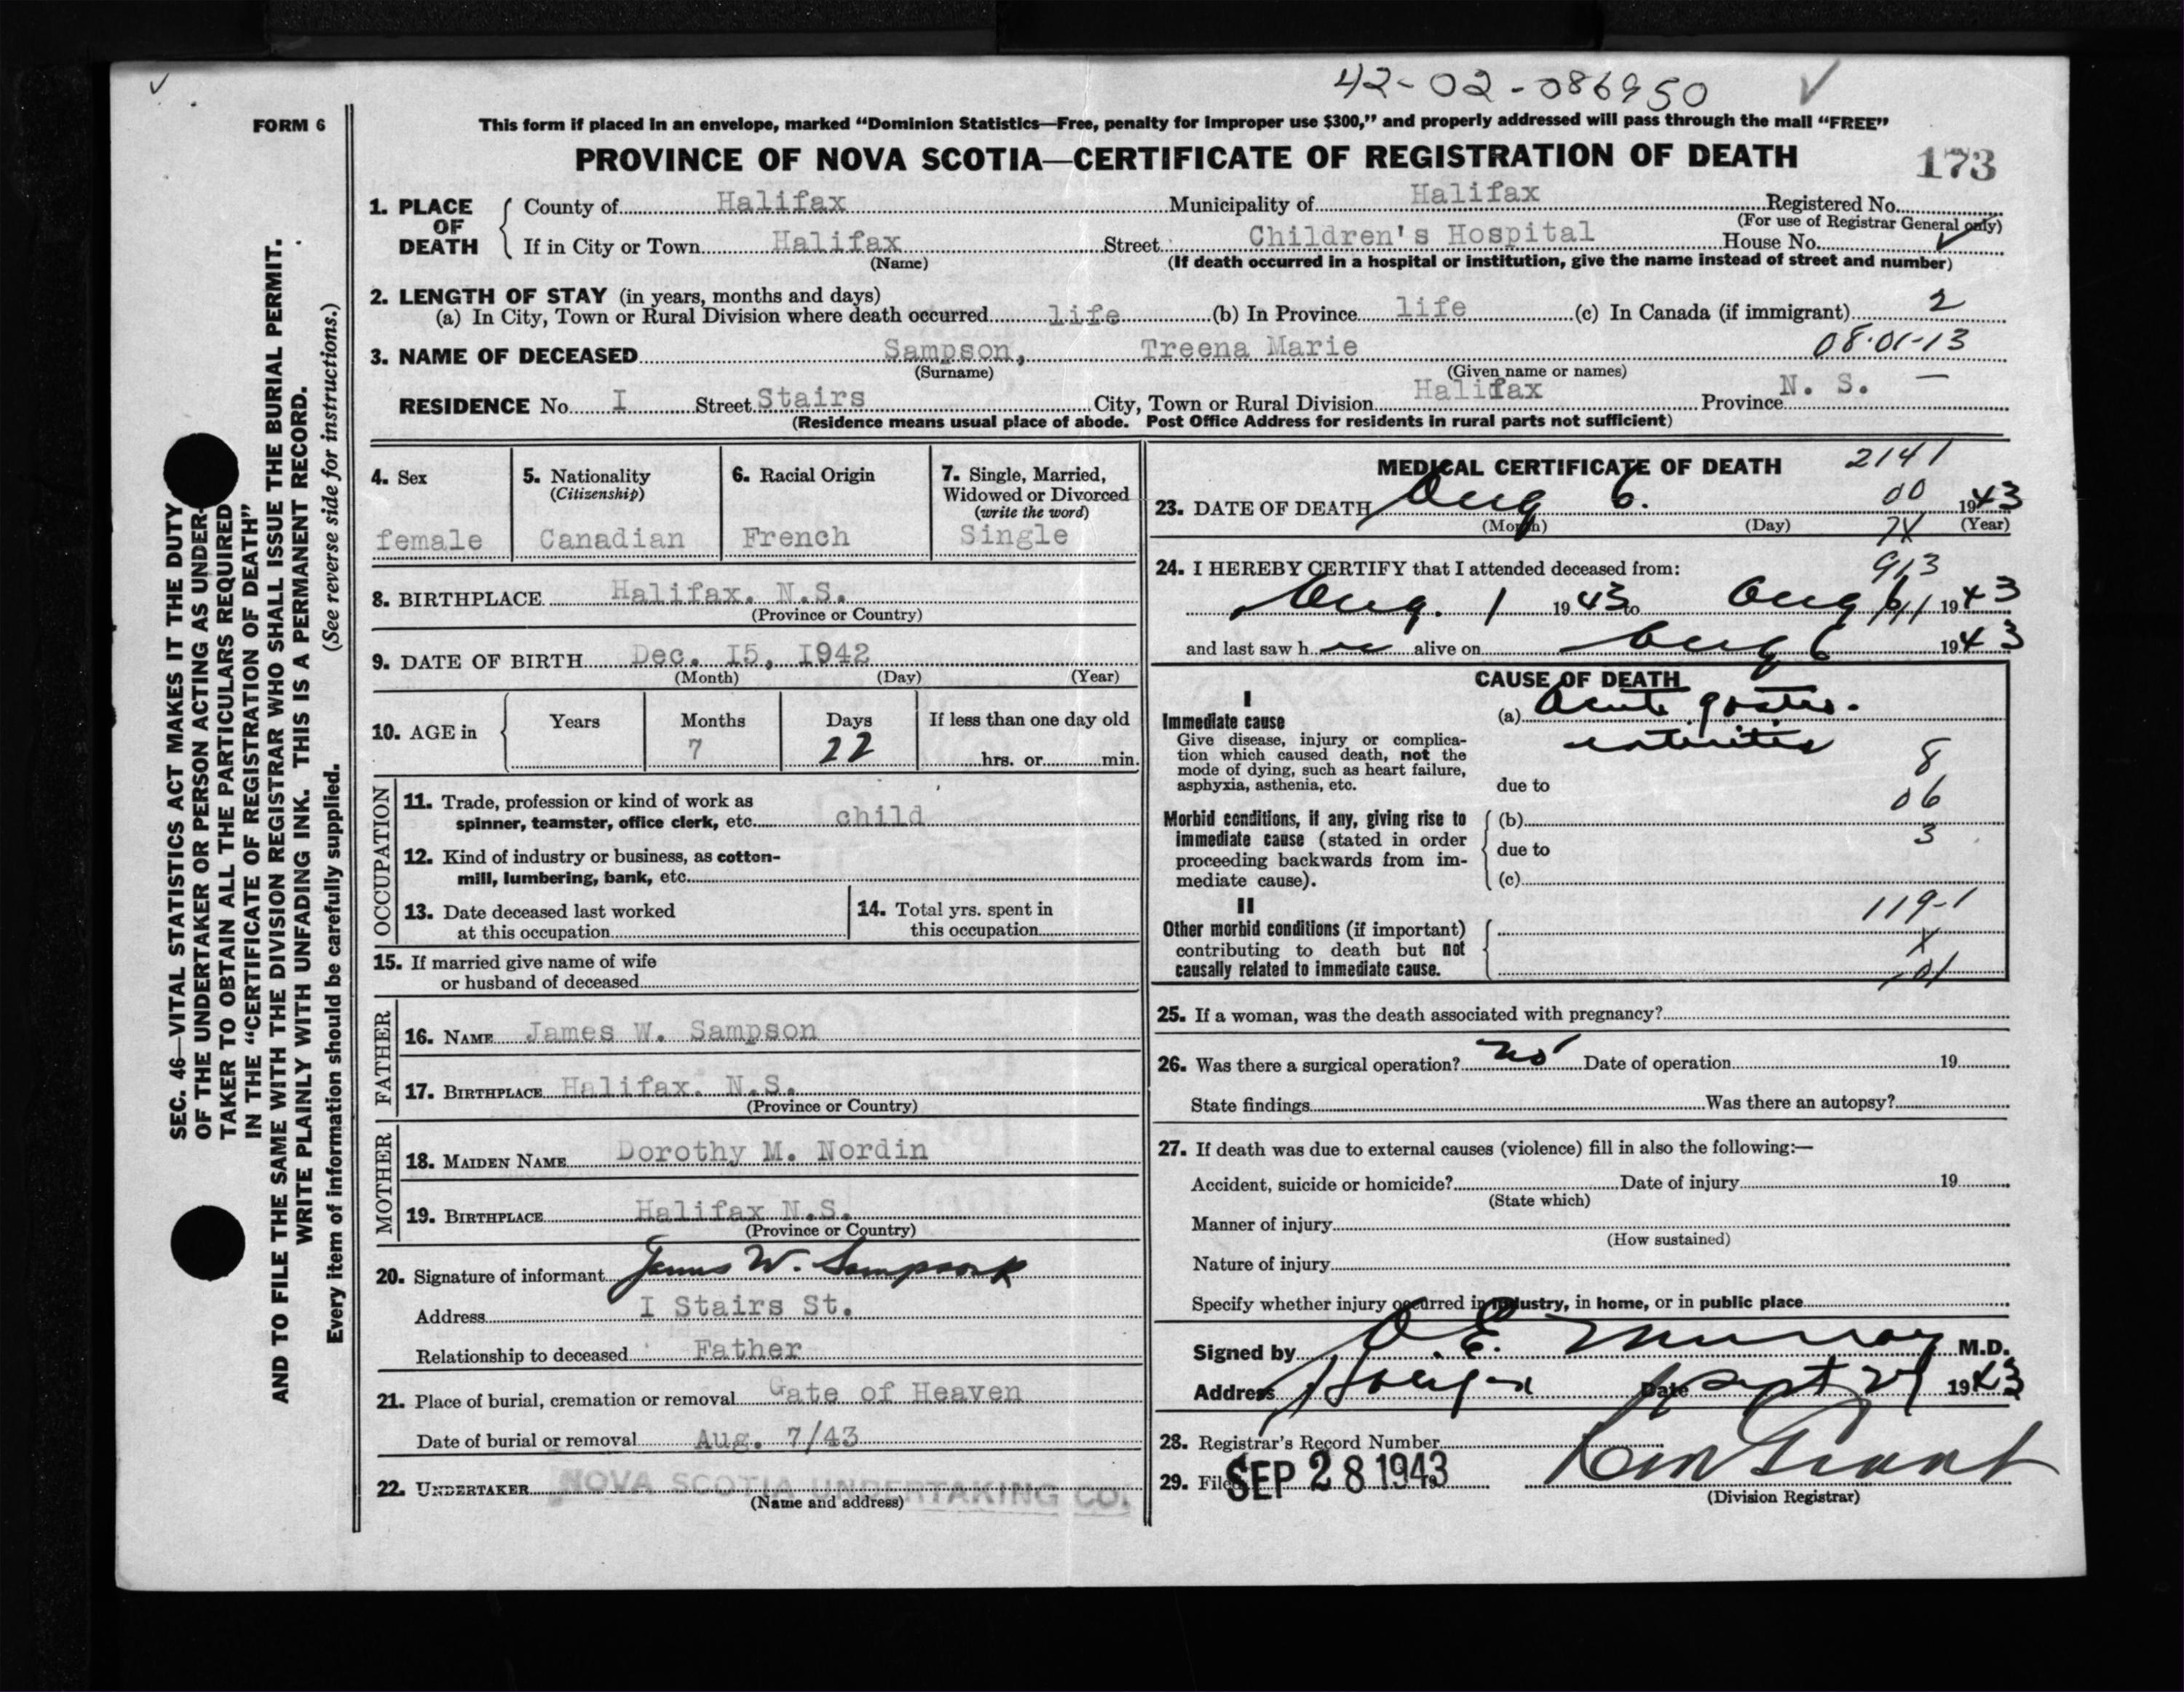 42-02-086950
FORM 6
This form if placed in an envelope, marked “Dominion Statistics—Free, penalty for improper use $300,” and properly addressed will pass through the mail “FREE”
PROVINCE OF NOVA SCOTIA—CERTIFICATE OF REGISTRATION OF DEATH
173
1. PLACE OF DEATH
County of Halifax Municipality of Halifax Registered No.
(For use of Registrar General only)
If in City or Town Halifax Street Children's Hospital House No.
(Name) (If death occurred in a hospital or institution, give the name instead of street and number)
2. LENGTH OF STAY (in years, months and days)
(a) In City, Town or Rural Division where death occurred life (b) In Province life (c) In Canada (if immigrant) 2
3. NAME OF DECEASED Sampson, Treena Marie 08-01-13
(Surname) (Given name or names)
RESIDENCE No. I Street Stairs City, Town or Rural Division Halifax Province N. S. —
(Residence means usual place of abode. Post Office Address for residents in rural parts not sufficient)
4. Sex
female
5. Nationality
(Citizenship)
Canadian
6. Racial Origin
French
7. Single, Married,
Widowed or Divorced
(write the word)
Single
8. BIRTHPLACE Halifax. N.S.
(Province or Country)
9. DATE OF BIRTH Dec. I5, I942
(Month) (Day) (Year)
10. AGE in
Years Months Days If less than one day old
7 22 hrs. or min.
OCCUPATION
11. Trade, profession or kind of work as
spinner, teamster, office clerk, etc. child
12. Kind of industry or business, as cotton-
mill, lumbering, bank, etc.
13. Date deceased last worked
at this occupation
14. Total yrs. spent in
this occupation
15. If married give name of wife
or husband of deceased
FATHER
16. NAME James W. Sampson
17. BIRTHPLACE Halifax. N.S.
(Province or Country)
MOTHER
18. MAIDEN NAME Dorothy M. Nordin
19. BIRTHPLACE Halifax N.S.
(Province or Country)
20. Signature of informant James W. Sampson
Address I Stairs St.
Relationship to deceased Father
21. Place of burial, cremation or removal Gate of Heaven
Date of burial or removal Aug. 7/43
22. UNDERTAKER NOVA SCOTIA UNDERTAKING CO.
(Name and address)
MEDICAL CERTIFICATE OF DEATH 2141
00
23. DATE OF DEATH Aug 6. 1943
(Month) (Day) (Year)
7X
24. I HEREBY CERTIFY that I attended deceased from: 913
Aug. 1 1943 to Aug 6 1943
and last saw h alive on Aug 6 1943
CAUSE OF DEATH
I
Immediate cause
Give disease, injury or complica-
tion which caused death, not the
mode of dying, such as heart failure,
asphyxia, asthenia, etc.
(a) Acute gastro.
enteritis
8
due to
06
Morbid conditions, if any, giving rise to
immediate cause (stated in order
proceeding backwards from im-
mediate cause).
(b)
3
due to
(c)
II
119-1
Other morbid conditions (if important)
contributing to death but not
causally related to immediate cause.
X
-01
25. If a woman, was the death associated with pregnancy?
26. Was there a surgical operation? no Date of operation 19
State findings Was there an autopsy?
27. If death was due to external causes (violence) fill in also the following:—
Accident, suicide or homicide? Date of injury 19
(State which)
Manner of injury
(How sustained)
Nature of injury
Specify whether injury occurred in industry, in home, or in public place
Signed by E. Murray M.D.
Address Halifax Date Sept 27 1943
28. Registrar's Record Number
29. Filed SEP 28 1943
(Division Registrar)
SEC. 46—VITAL STATISTICS ACT MAKES IT THE DUTY
OF THE UNDERTAKER OR PERSON ACTING AS UNDER-
TAKER TO OBTAIN ALL THE PARTICULARS REQUIRED
IN THE “CERTIFICATE OF REGISTRATION OF DEATH”
AND TO FILE THE SAME WITH THE DIVISION REGISTRAR WHO SHALL ISSUE THE BURIAL PERMIT.
WRITE PLAINLY WITH UNFADING INK. THIS IS A PERMANENT RECORD.
Every item of information should be carefully supplied. (See reverse side for instructions.)